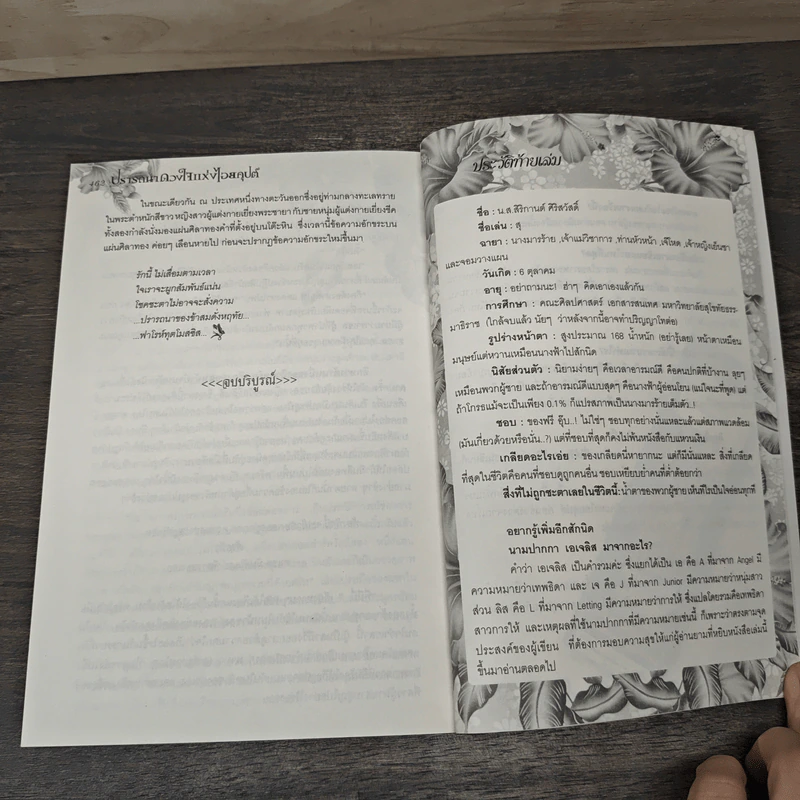 ๑๙๒ ปรารถนาดวงใจแห่งไอยคุปต์
ในขณะเดียวกัน ณ ประเทศหนึ่งทางตะวันออกซึ่งอยู่ท่ามกลางทะเลทราย
ในพระตำหนักสีขาว หญิงสาวผู้แต่งกายเยี่ยงพระชายา กับชายหนุ่มผู้แต่งกายเยี่ยงชีค
ทั้งสองกำลังนั่งมองแผ่นศิลาทองคำที่ตั้งอยู่บนโต๊ะหิน ซึ่งเวลานี้ข้อความอักขระบน
แผ่นศิลาทอง ค่อยๆ เลือนหายไป ก่อนจะปรากฏข้อความอักขระใหม่ขึ้นมา
รักนี้ ไม่เสื่อมตามเวลา
ใจเราจะผูกสัมพันธ์แน่น
โชคชะตาไม่อาจจะสั่งความ
...ปรารถนาของข้าสมดั่งหฤทัย...
...ฟาโรห์ทุตโมสซิส...
<<<จบบริบูรณ์>>>
ประวัติท้ายเล่ม
ชื่อ : น.ส.สิริกานต์ ศิริสวัสดิ์
ชื่อเล่น : สุ
ฉายา : นางมารร้าย ,เจ้าแม่วิชาการ ,ท่านหัวหน้า ,เจ๊โหด ,เจ้าหญิงเย็นชา
และจอมวางแผน
วันเกิด : 6 ตุลาคม
อายุ : อย่าถามนะ! ฮ่าๆ คิดเอาเองแล้วกัน
การศึกษา : คณะศิลปศาสตร์ เอกสารสนเทศ มหาวิทยาลัยสุโขทัยธรร-
มาธิราช (ใกล้จบแล้ว นัยๆ ว่าหลังจากนี้อาจทำปริญญาโทต่อ)
รูปร่างหน้าตา : สูงประมาณ 168 น้ำหนัก (อย่ารู้เลย) หน้าตาเหมือน
มนุษย์แต่หวานเหมือนนางฟ้าไปสักนิด
นิสัยส่วนตัว : นิยามง่ายๆ คือเวลาอารมณ์ดี คือคนปกติที่บ้างาน ลุยๆ
เหมือนพวกผู้ชาย และถ้าอารมณ์ดีแบบสุดๆ คือนางฟ้าผู้อ่อนโยน (แน่ใจนะที่พูด) แต่
ถ้าโกรธแม้จะเป็นเพียง 0.1% ก็แปรสภาพเป็นนางมารร้ายเต็มตัว..!
ชอบ : ของฟรี อุ๊บ..! ไม่ใช่ๆ ชอบทุกอย่างนั่นแหละแล้วแต่สภาพแวดล้อม
(มันเกี่ยวด้วยหรือนั่น..?) แต่ที่ชอบที่สุดก็คงไม่พ้นหนังสือกับแหวนเงิน
เกลียดอะไรเอ่ย : ของเกลียดนี่หายากนะ แต่ก็มีนั่นแหละ สิ่งที่เกลียด
ที่สุดในชีวิตคือคนที่ชอบดูถูกคนอื่น ชอบเหยียบย่ำคนที่ต่ำต้อยกว่า
สิ่งที่ไม่ถูกชะตาเลยในชีวิตนี้: น้ำตาของพวกผู้ชาย เห็นทีไรเป็นใจอ่อนทุกที
อยากรู้เพิ่มอีกสักนิด
นามปากกา เอเจลิส มาจากอะไร?
คำว่า เอเจลิส เป็นคำรวมค่ะ ซึ่งแยกได้เป็น เอ คือ A ที่มาจาก Angel มี
ความหมายว่าเทพธิดา และ เจ คือ J ที่มาจาก Junior มีความหมายว่าหนุ่มสาว
ส่วน ลิส คือ L ที่มาจาก Letting มีความหมายว่าการให้ ซึ่งแปลโดยรวมคือเทพธิดา
สาวการให้ และเหตุผลที่ใช้นามปากกาที่มีความหมายเช่นนี้ ก็เพราะว่าตรงตามจุด
ประสงค์ของผู้เขียน ที่ต้องการมอบความสุขให้แก่ผู้อ่านยามที่หยิบหนังสือเล่มนี้
ขึ้นมาอ่านตลอดไป